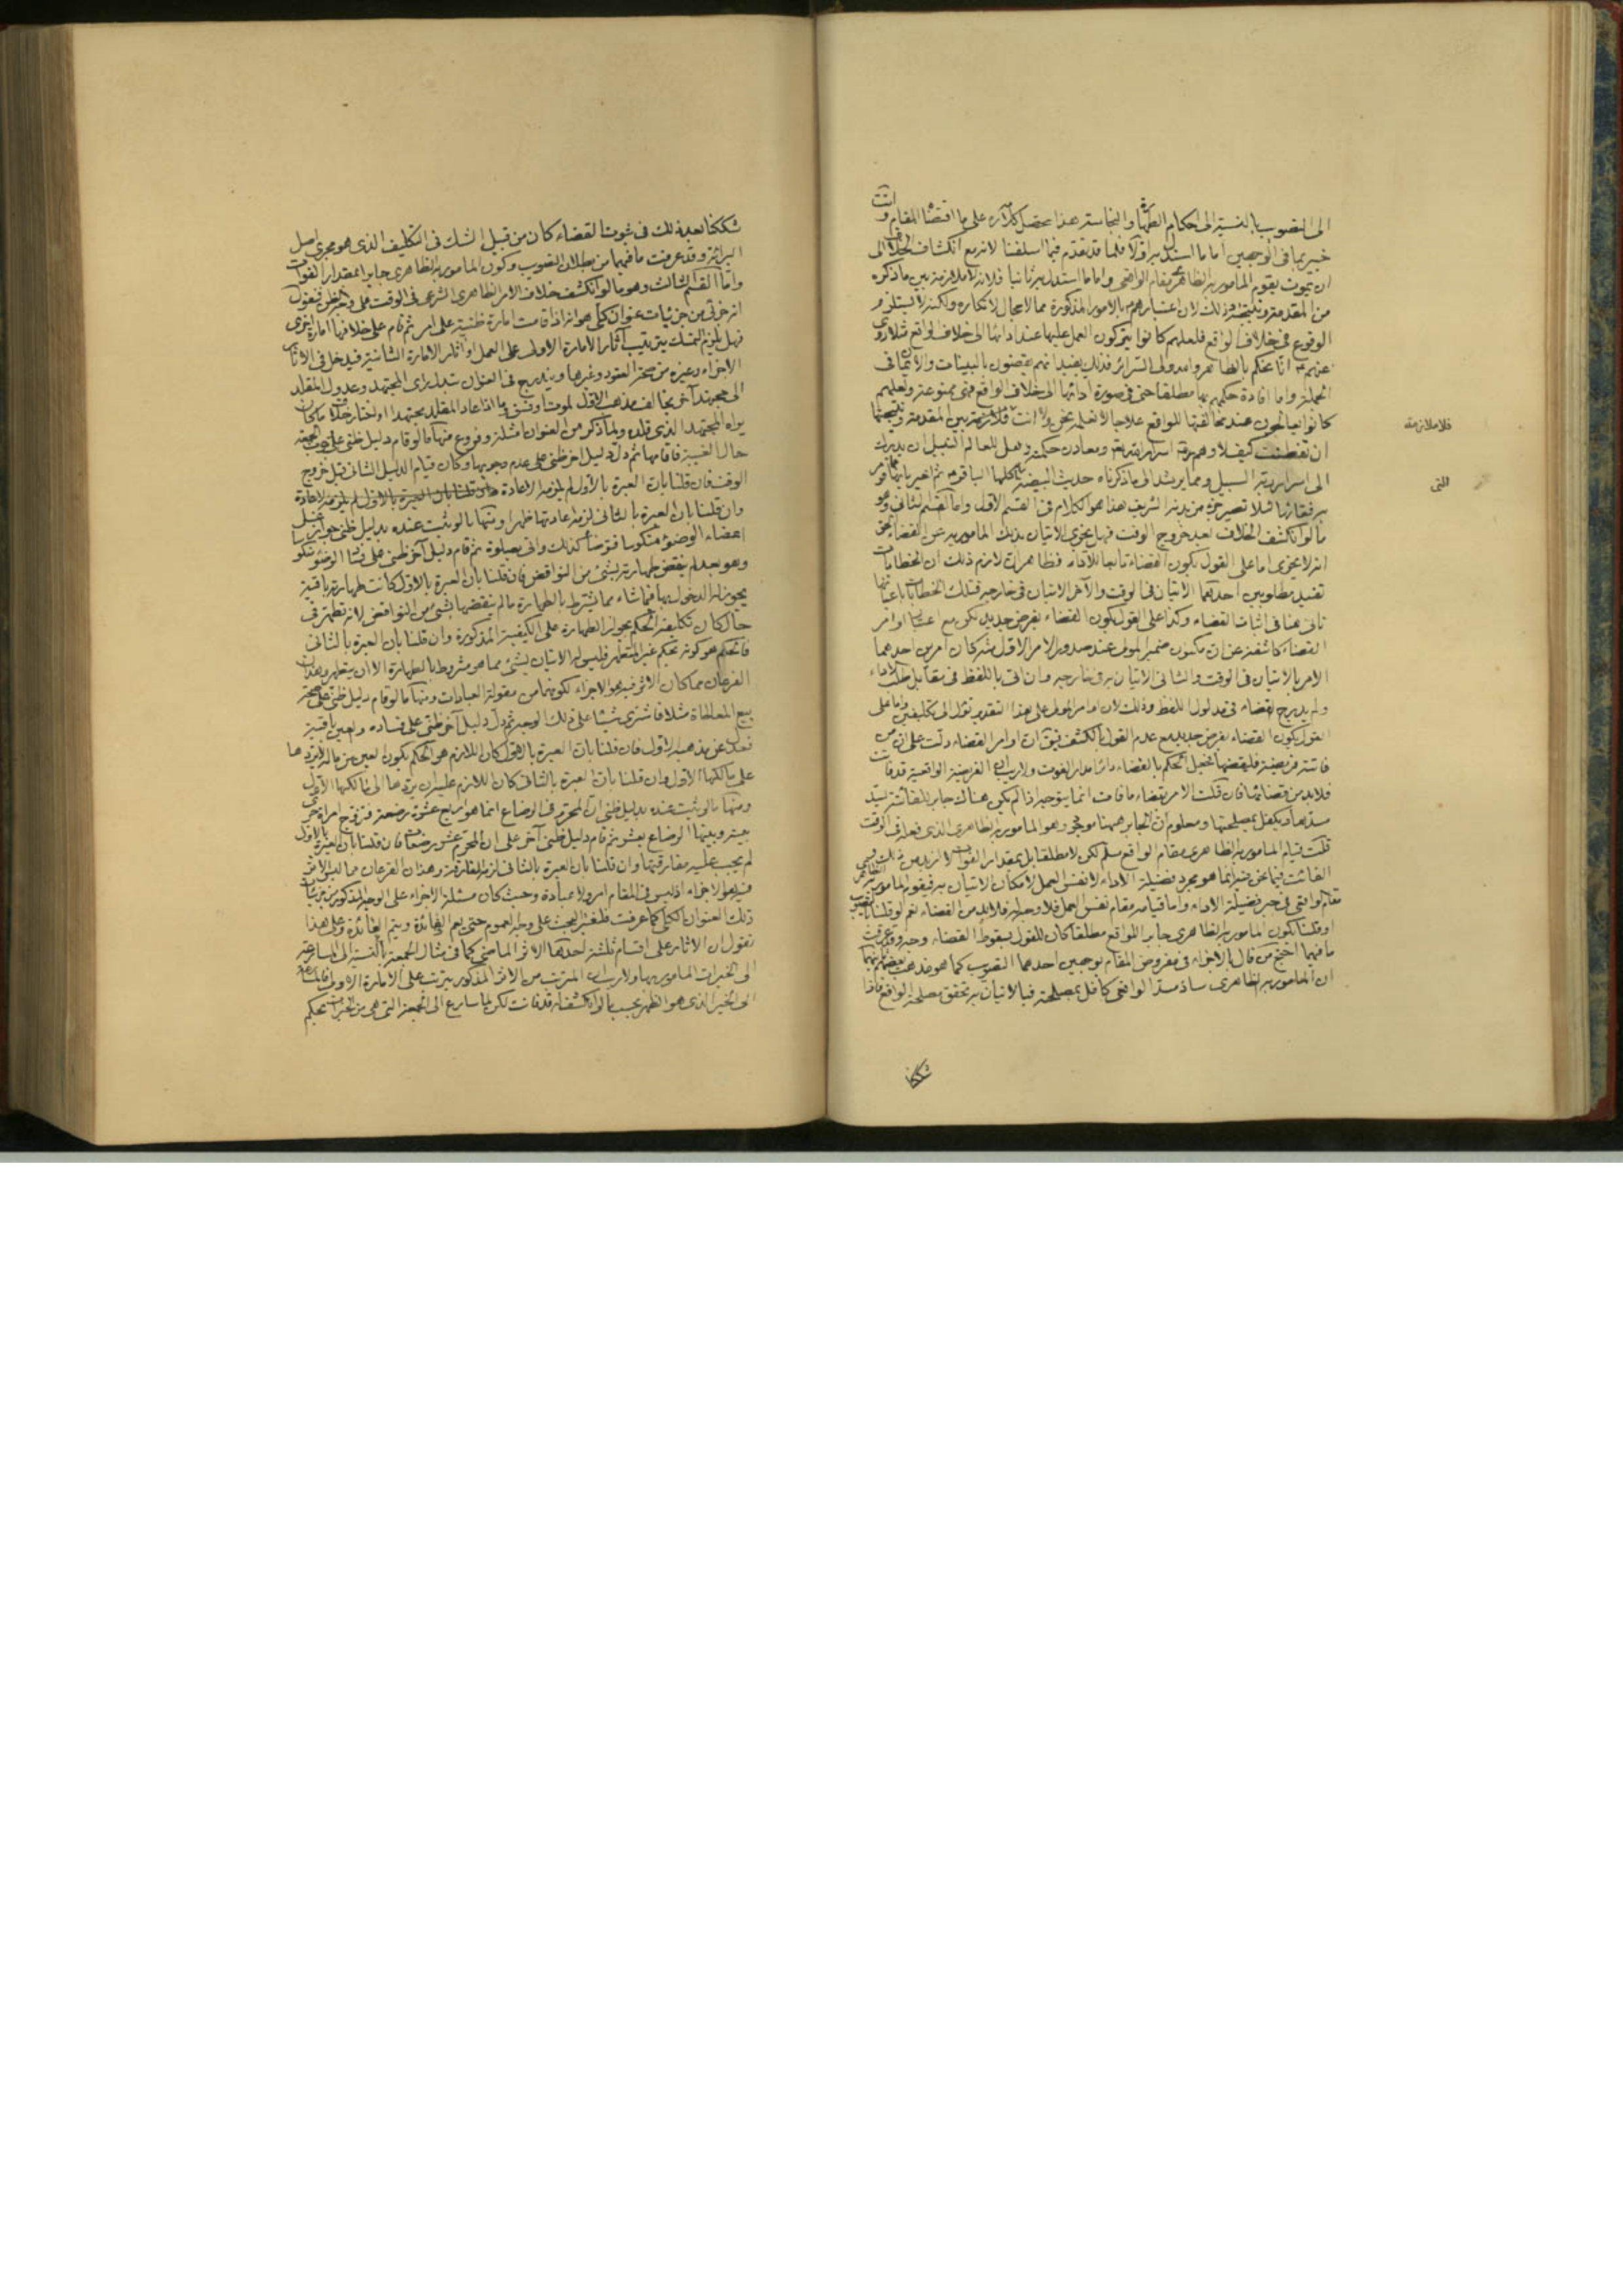 الى التصويب بالنسبة الى احكام الطهارة والنجاسة هذا محصل كلامه على ما اقتضاه المقام وانت
خبير بما فى الوجهين اما ما استدل به اولا فلما قد تقدم فيما اسلفنا لانه مع انكشاف الخلاف الى
ان يموت يقوم المامور به الظاهرى مقام الواقعى واما ما استدل به ثانيا فلانه لا ملازمة بين ما ذكره
من المقدمة ونتيجته وذلك لان اعتبارهم بالامور المذكورة مما لا مجال لانكاره ولكنه لا يستلزم
الوقوع فى خلاف الواقع فلعلهم كانوا يتركون العمل عليها عند ادائها الى خلاف الواقع مثلا روى
عنهم انا نحكم بالظاهر والله ولى السرائر فذلك يفيد انهم يقضون بالبينات والايمان فى
الجملة واما افادة حكمهم بها مطلقا حتى فى صورة ادائها الى خلاف الواقع فهى ممنوعة ولعلهم
كانوا يعالجون عند مخالفتها للواقع علاجا لا نعلمه نحن ولا انت فلا ملازمة بين المقدمة ونتيجتها
ان تفطنت كيف لا وهم خزنة اسرار الله ومعادن حكمته وهل للعالم النبيل ان يدرك
الى اسرارهم السبيل ومما يرشد الى ما ذكرناه حديث البيضة
مالو انكشف الخلاف بعد خروج الوقت فهل يجزى الاتيان بذلك المامور به عن القضاء الحق
انه لا يجزى اما على القول بكون القضاء تابعا للاداء فظاهر لان لازم ذلك ان الخطابات
تفيد مطلوبين احدهما الاتيان فى الوقت والآخر الاتيان فى خارجه فتلك الخطابات باعيانها
تاتى هنا فى اثبات القضاء وكذا على القول بكون القضاء بفرض جديد لكن مع اعتبار اوامر
القضاء كاشفة عن ان مكنون ضمير المولى عند صدور الامر الاول منه كان امرين احدهما
الامر بالاتيان فى الوقت والثانى الاتيان به فى خارجه وان اتى باللفظ فى مقابل طلب الاداء
ولم يدرج القضاء فى مدلول اللفظ وذلك لان اوامر المولى على هذا التقدير تؤل الى تكليفين واما على
القول بكون القضاء بفرض جديد مع عدم القول بالكشف فيق ان اوامر القضاء دلت على ان من
فاتته فريضة فليقضها فجعل الحكم بالقضاء دائرا مدار الفوت ولا ريب ان الفريضة الواقعية قد فاتت
فلابد من قضائها فان قلت الامر بقضاء ما فات انما يتوجه اذا لم يكن هناك جابر للفائتة يسد
مسدها ويكفل بمصلحتها ومعلوم ان الجابر هيهنا موجود وهو المامور به الظاهرى الذى فعله فى الوقت
قلت قيام المامور به الظاهرى مقام الواقع مسلم لكن لا مطلقا بل بمقدار الفوات لا ازيد من ذلك
الفائت فيما نحن فيه انما هو مجرد فضيلة الاداء لا نفس العمل لامكان الاتيان به فيقوم المامور به الظاهرى
مقام الواقعى فى جبر فضيلة الاداء واما قيامه مقام نفس العمل فلا وجه له فلابد من القضاء نعم لو قلنا بالتصويب
او قلنا بكون المامور به الظاهرى جابرا للواقع مطلقا كان للقول بسقوط القضاء وجه وقد عرفت
ما فيهما احتج من قال بالاجزاء فى مفروض المقام بوجهين احدهما التصويب كما هو مذهب بعضهم ثانيهما
ان المامور به الظاهرى ساد مسد الواقعى كافل بمصلحته فبالاتيان به تحقق مصلحة الواقع فاذا
شككنا
فلا ملازمة
التى
شككنا بعد ذلك فى ثبوت القضاء كان من قبيل الشك فى التكليف الذى هو مجرى اصل
البرائة وقد عرفت ما فيهما من بطلان التصويب وكون المامور به الظاهرى جابرا بمقدار الفوات
واما القسم الثالث وهو ما لو انكشف خلاف الامر الظاهرى الشرعى فى الوقت على وجه ظنى فنقول
انه جزئى من جزئيات عنوان كلى هو انه اذا قامت امارة ظنية على امر ثم قام على خلافها امارة اخرى
فهل يلزم التمسك بترتيب آثار الامارة الاولى على العمل او آثار الامارة الثانية فيدخل فى الآثار
الاجزاء وغيره من صحة العقود وغيرها ويندرج فى العنوان تبدل راى المجتهد وعدول المقلد
الى مجتهد آخر يخالف مذهب الاول لموت او فسق وما اذا عاد المقلد مجتهدا واختار خلاف ما كان
يراه المجتهد الذى قلده ولما ذكر من العنوان امثلة وفروع منها ما لو قام دليل ظنى على وجوب الجمعة
حال الغيبة فاقامها ثم دل دليل آخر ظنى على عدم وجوبها وكان قيام الدليل الثانى قبل خروج
الوقت فان قلنا بان العبرة بالاول لم يلزمه الاعادة وان قلنا بان العبرة بالاول لم يلزمه الاعادة
وان قلنا بان العبرة بالثانى لزمه اعادتها ظهرا ومنها ما لو ثبت عنده بدليل ظنى جواز غسل
اعضاء الوضوء منكوسا فتوضأ كذلك واتى بصلوة ثم قام دليل آخر ظنى على فساد الوضوء منكوسا
وهو بعد لم ينقض طهارته بشئ من النواقض فان قلنا بان العبرة بالاول كانت طهارته باقية
يجوز له الدخول بها فيما شاء مما يشترط بالطهارة ما لم ينقضها بشئ من النواقض لانه تطهر فى
حال كان تكليفه الحكم بجواز الطهارة على الكيفية المذكورة وان قلنا بان العبرة بالثانى
فالحكم هو كونه بحكم غير المتطهر فليس له الاتيان بشئ مما هو مشروط بالطهارة الا ان يتطهر وهذان
الفرعان مما كان الاثر فيه هو الاجزاء لكونهما من مقولة العبادات ومنها ما لو قام دليل ظنى على صحة
بيع المعاطاة مثلا فاشترى شيئا على ذلك الوجه ثم دل دليل آخر ظنى على فساده والعين باقية
فعدل عن مذهبه الاول فان قلنا بان العبرة بالاول كان اللازم هو الحكم بكون العين من ماله لا يردها
على مالكها الاول وان قلنا بان العبرة بالثانى كان اللازم عليه ان يردها الى مالكها الاول
ومنها ما لو ثبت عنده بدليل ظنى ان المحرم فى الرضاع انما هو اربع عشرة رضعة فتزوج امراة جرى
بينه وبينها الرضاع بعشر ثم قام دليل ظنى آخر على ان المحرم عشر رضعات فان قلنا بان العبرة بالاول
لم يجب عليه مفارقتها وان قلنا بان العبرة بالثانى لزمه المفارقة وهذان الفرعان مما ليس الاثر
فيه هو الاجزاء اذ ليس فى المقام امر ولا عبادة وحيث كان مسئلة الاجزاء على الوجه المذكور من جزئيات
ذلك العنوان الكلى كما عرفت فلنغير البحث على وجه العموم حتى يعم الفائدة ويتم العائدة وعلى هذا
نقول ان الآثار على اقسام ثلثة احدها الاثر الماضى كما فى مثال الجمعة بالنسبة الى المسارعة
الى الخيرات المامور بها ولا ريب ان المرتب من الاثر المذكور يترتب على الامارة الاولى
الى الخير الذى هو الظهر بحسب ما لو انكشف له قد فاتت لكن لما سارع الى الجمعة التى هى من الخيرات بحكم